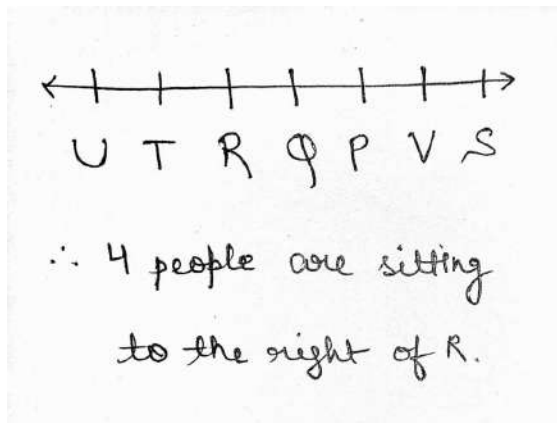 U T R Q P V S
∴ 4 people are sitting
to the right of R.